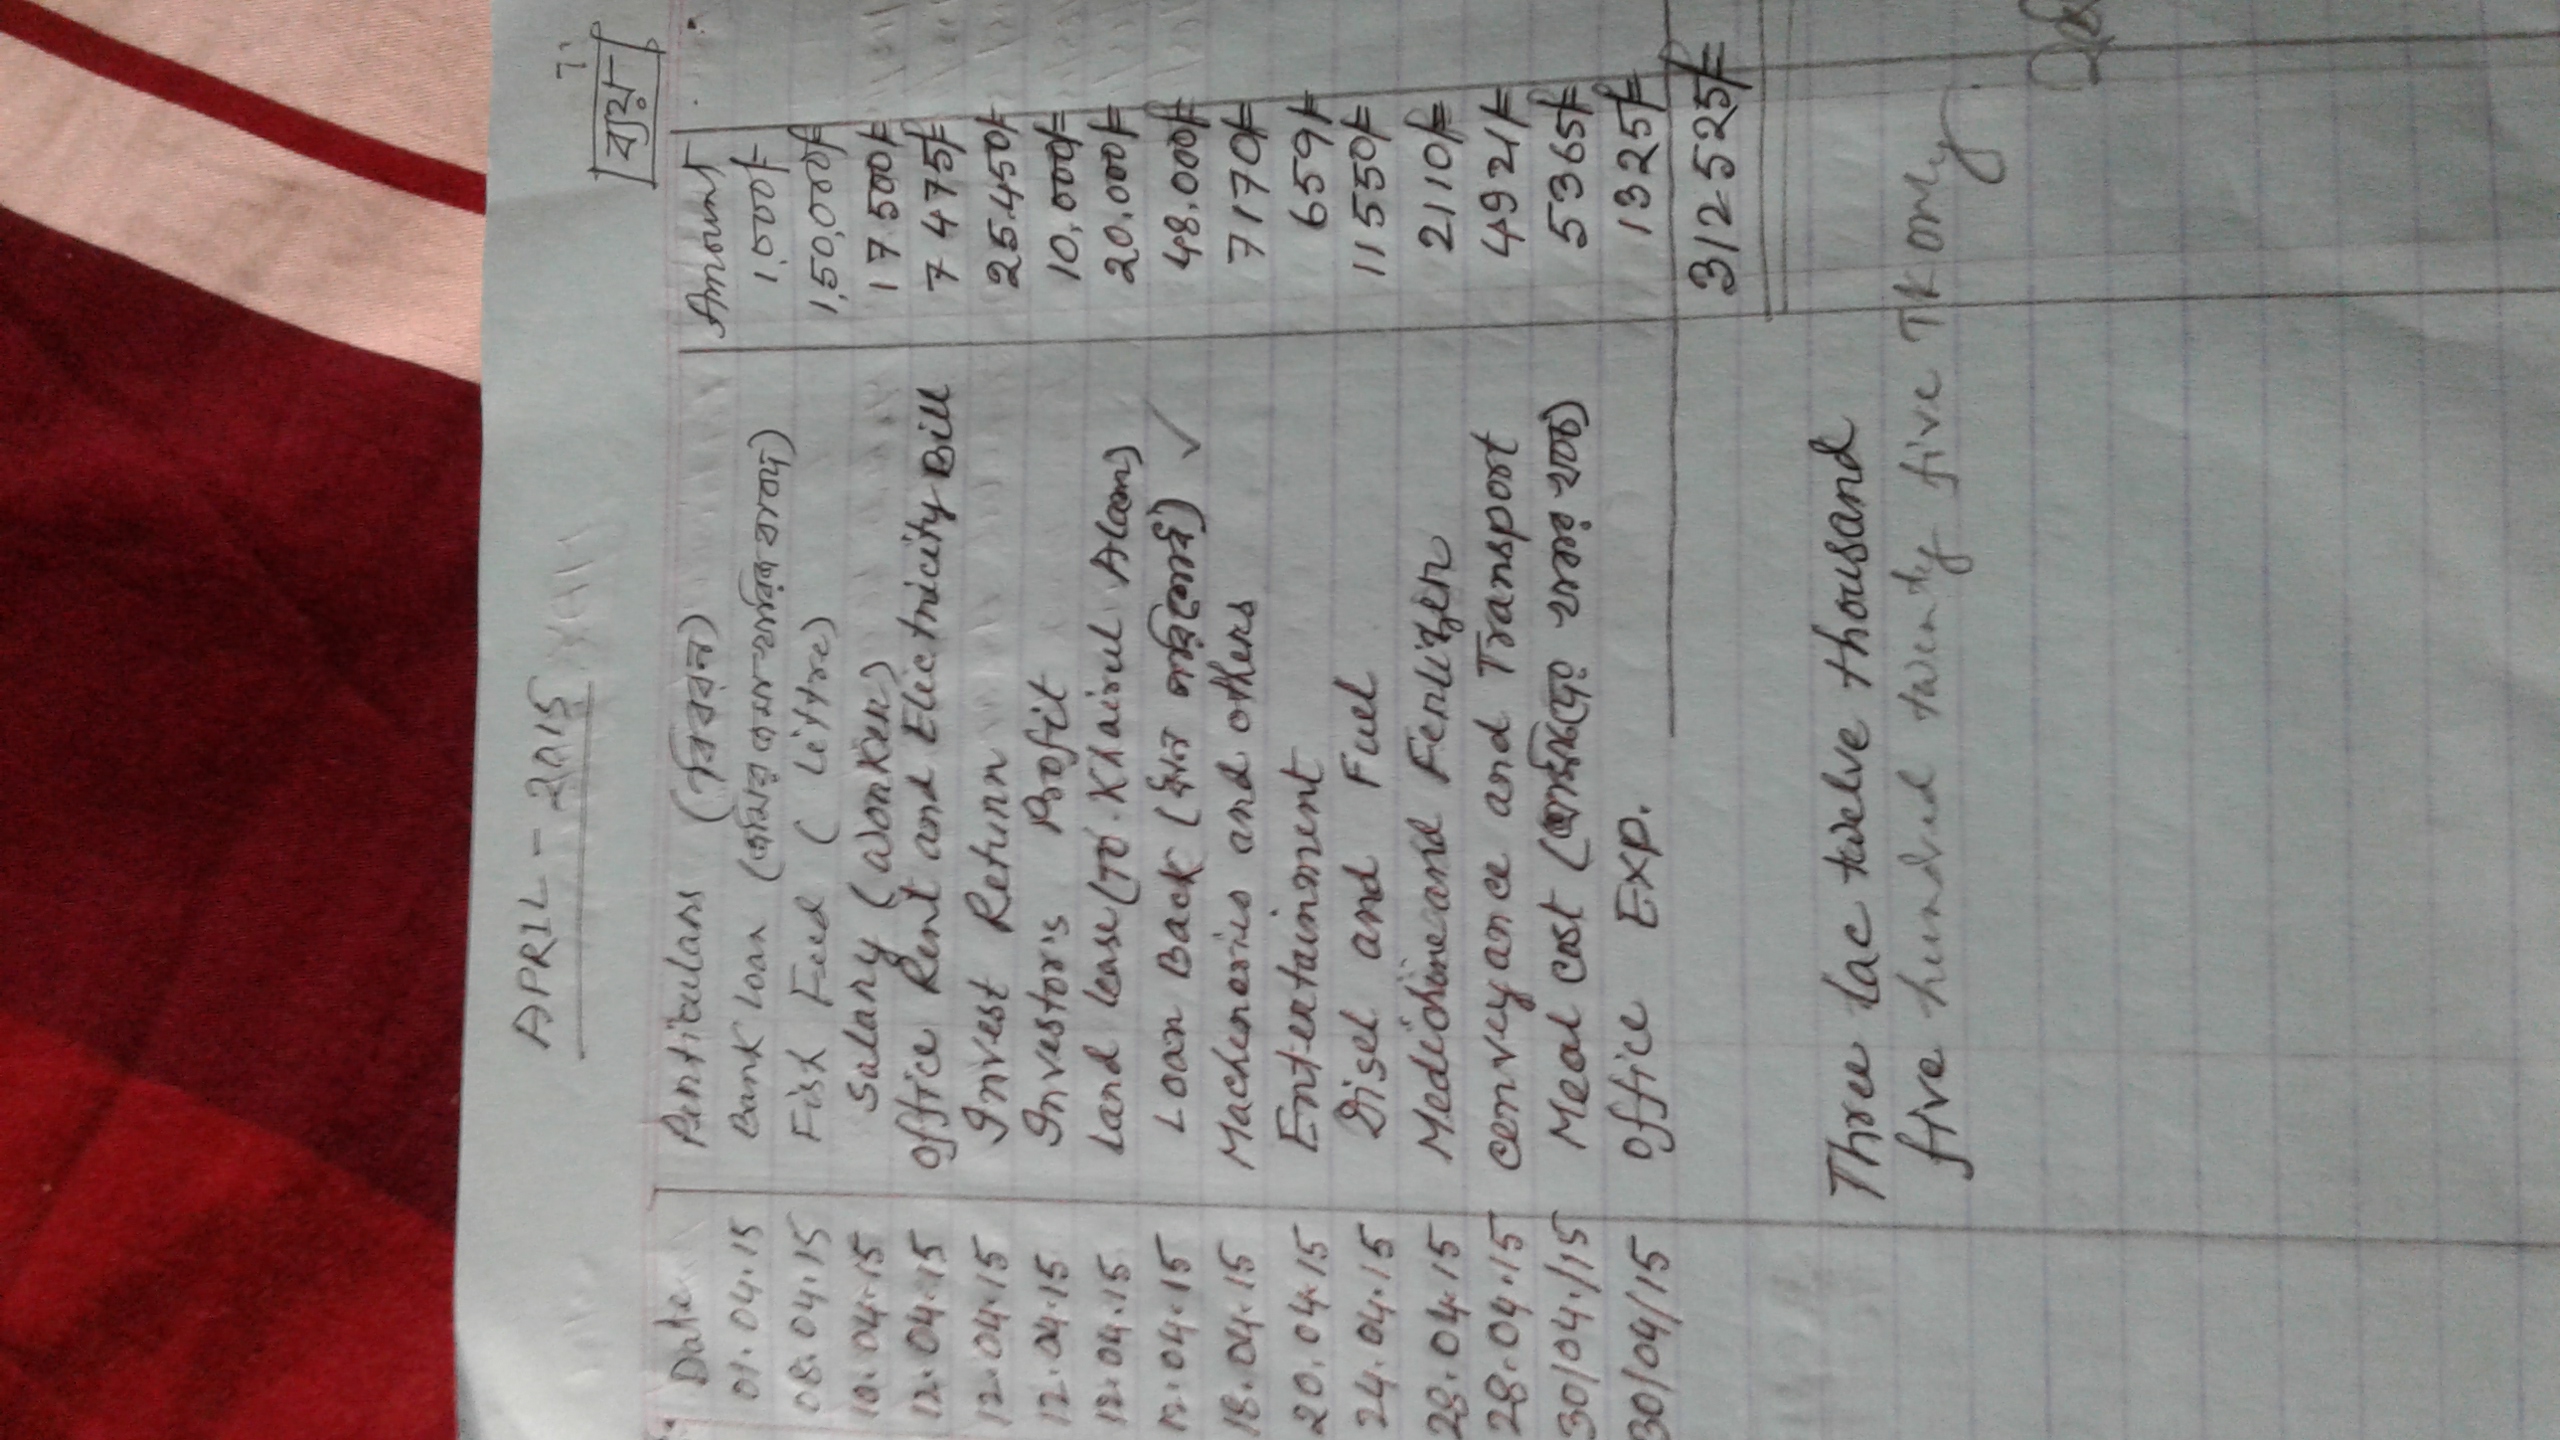 APRIL - 2015
ব্যয়
Date Penticulans (বিবরন) Amount
01.04.15 Bank Loan (জমির জমা খারিজ বাবদ) 1,000/=
08.04.15 Fish Feed ( Littre) 1,50,000/=
10.04.15 Salany (Wonken) 17500/=
12.04.15 office Rent and Electnicity Bill 7475/=
12.04.15 Invest Retunn 25.450/=
12.04.15 Investor's Profit 10,000/=
12.04.15 Land lease (To Khairul Alam) 20.000/=
12.04.15 Loan Back (ঋন পরিশোধ) ✓ 48.000/=
18.04.15 Machineries and othens 7170/=
20.04.15 Entertainment 659/=
24.04.15 Disel and Fuel 11550/=
28.04.15 Medichine and Fenlizen 2110/=
28.04.15 conveyance and Transport 4921/=
30/04./15 Meal cost ( খাবার খরচ) 5365/=
30/04/15 office Exp. 1325/=
312525/=
Three lac twelve thousand
five hundred twenty five Tk only